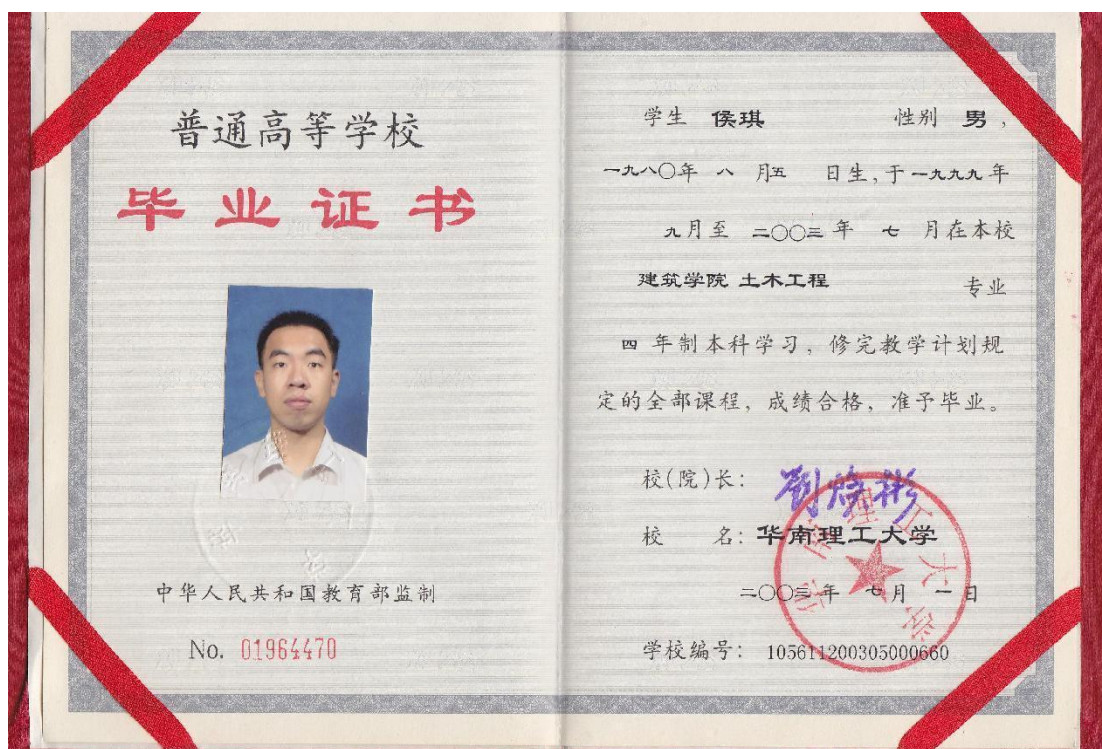 普通高等学校
毕业证书
中华人民共和国教育部监制
No. 01964470
学生 侯琪 性别 男，
一九八〇年 八 月五 日生，于一九九九年
九月至 二〇〇三年 七 月在本校
建筑学院 土木工程 专业
四 年制本科学习，修完教学计划规
定的全部课程，成绩合格，准予毕业。
校(院)长：劉煥彬
校 名：华南理工大学
二〇〇三年 七月 一日
学校编号： 105611200305000660
华南理工大学